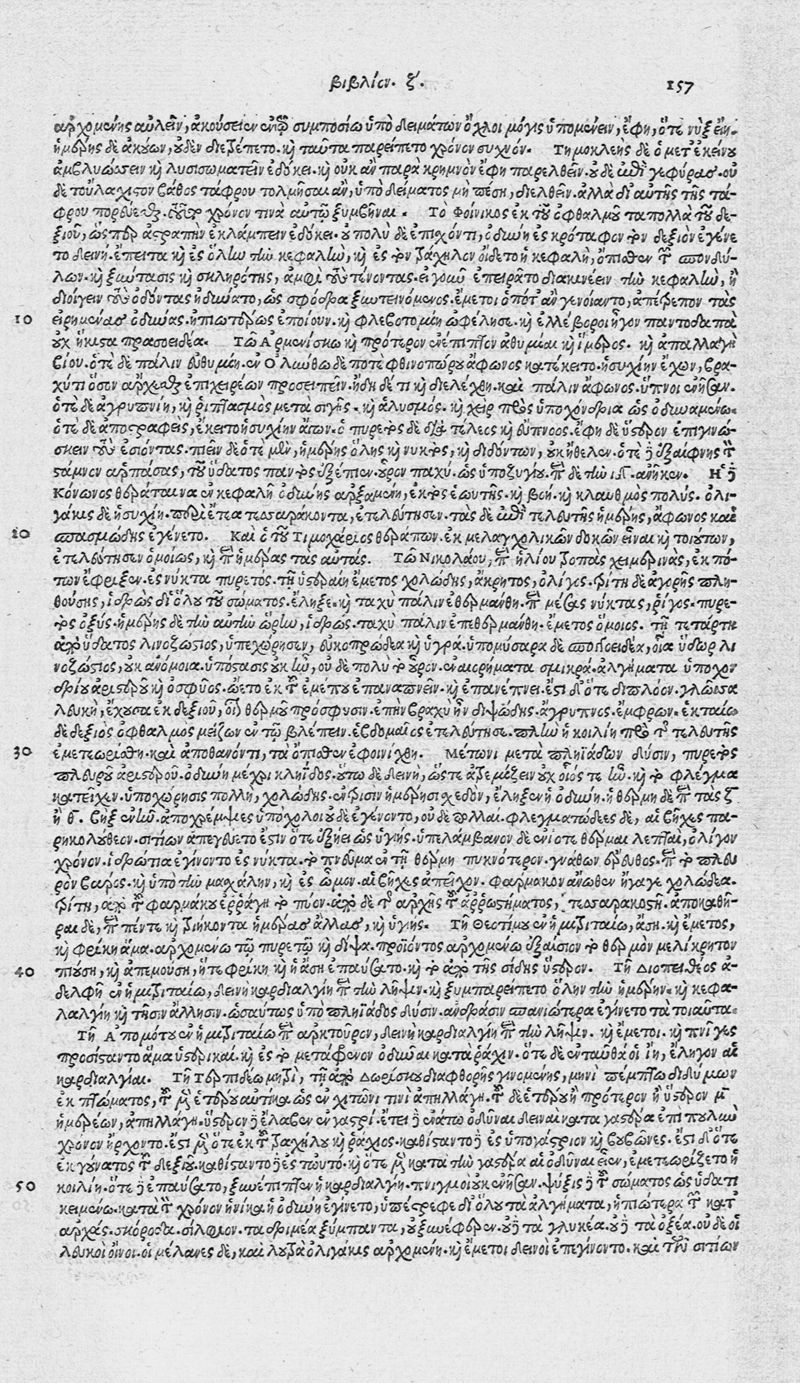 βιβλίον. ζ. 157
ἀρχομένης αὐλεῖν, ἀκούσειεν ἐν τῷ συμποσίῳ ὑπὸ δειμάτων ὄχλοι μόγις ὑπομένειν, ἔφη, ὅτε νὺξ εἴη.
ἡμέρης δὲ ἀκούων, οὐδὲν διετρέπετο. καὶ ταῦτα παρείπετο χρόνον συχνόν. Τημοκλῆς δὲ ὁ μετ' ἐκείνου
ἀμβλυώσσειν καὶ λυσισωματεῖν ἐδόκει. καὶ οὐκ ἂν παρὰ κρημνὸν ἔφη παρελθεῖν. οὐδὲ ἐπὶ γεφύρας. οὐ
δὲ τοὐλάχιστον βάθος τάφρου τολμῆσαι ἂν, ὑπὸ δείματος μὴ πέσῃ, διελθεῖν. ἀλλὰ δι' αὐτῆς τῆς τά-
φρου πορεύεσθαι. τοῦτο χρόνον τινὰ αὐτῷ ξυμβῆναι. Τὸ Φοίνικος ἐκ τοῦ ὀφθαλμοῦ τὰ πολλὰ τοῦ δε-
ξιοῦ, ὥσπερ ἀστραπὴν ἐκλάμπειν ἐδόκει. οὐ πολὺ δὲ ἐπισχόντι, ὀδύνη ἐς κρόταφον τὸν δεξιὸν ἐγένε
το δεινή. ἔπειτα καὶ ἐς ὅλην τὴν κεφαλὴν, καὶ ἐς τὸν τράχηλον οἴδετο ἡ κεφαλὴ, ὄπισθεν τοῦ σπονδύ-
λων. καὶ ξύντασις καὶ σκληρότης, ἀμφὶ τοὺς τένοντας. εἰ γοῦν ἐπειρᾶτο διακινέειν τὴν κεφαλὴν, ἢ
διοίγειν τοὺς ὀδόντας ἠδύνατο, ὡς σφόδρα ξυντεινόμενος. ἔμετοι ὁπότ' ἂν γενοίαντο, ἀπέτρεπον τὰς
10 εἰρημένας ὀδύνας. ἠπιωτέρως ἐποίουν. καὶ φλεβοτομίη ὠφέλησε. καὶ ἑλλέβοροι ἦγον παντοδαπὰ
οὐχ ἥκιστα πρασοειδέα. Τῷ Αρμενίσκῳ καὶ πρότερον ἐνέπιπτον ἀθυμίαι καὶ ἵμερος. καὶ ἀπαλλαγὴ
βίου. ὁτὲ δὲ πάλιν εὐθυμίη. ἐν Ολύνθῳ δέ ποτε φθινοπώρου ἄφωνος κατέκειτο. ἡσυχίην ἔχων, βρα-
χύ τι ὅσον ἄρχεσθαι ἐπιχειρέων προσειπεῖν. ἤδη δέ τι καὶ διελέχθη. καὶ πάλιν ἄφωνος. ὕπνοι ἐνῆσαν.
ὁτὲ δὲ ἀγρυπνίη, καὶ ῥιπτασμὸς μετὰ σιγῆς. καὶ ἀλυσμός. καὶ χεὶρ πρὸς ὑποχόνδρια ὡς ὀδυνωμένῳ.
ὁτὲ δὲ ἀποστραφεὶς, ἔκειτο ἡσυχίην ἄγων. ὁ πυρετὸς δὲ διὰ τέλεος καὶ εὔπνοος. ἔφη δὲ ὕστερον ἐπιγινώ-
σκειν τοὺς ἐσιόντας. πιεῖν δὲ ὁτὲ μὲν, ἡμέρης ὅλης καὶ νυκτὸς, καὶ διδόντων, οὐκ ἤθελεν. ὁτὲ δὲ ἐξαίφνης τὸν
στάμνον ἁρπάσας, τοῦ ὕδατος πᾶν τὸ ἐξέπιεν. οὖρον παχὺ, ὡς ὑποζυγίου.
Κόνωνος θεράπαινα ἐκ κεφαλῆς ὀδύνης ἀρξαμένη, ἐκτὸς ἑωυτῆς. καὶ βοή. καὶ κλαυθμὸς πολύς. ὀλι-
γάκις δὲ ἡσυχίη. περὶ ἔτεα τεσσαράκοντα, ἐτελεύτησεν. τὰς δὲ ἐπὶ τελευτῆς ἡμέρης, ἄφωνος καὶ
20 σπασμώδης ἐγένετο. Καὶ ὁ τοῦ Τιμοχάριος θεράπων. ἐκ μελαγχολικῶν δοκῶν εἶναι καὶ τοιούτων,
ἐτελεύτησεν ὁμοίως, καὶ περὶ ἡμέρας τὰς αὐτάς. Τῷ Νικολάου, περὶ ἡλίου τροπὰς χειμερινὰς, ἐκ πό-
των ἔφριξεν. ἐς νύκτα πυρετός. τῇ ὑστεραίῃ ἔμετος χολώδης, ἄκρητος, ὀλίγος. τρίτῃ δὲ ἀγορῆς πλη-
θούσης, ἱδρὼς δι' ὅλου τοῦ σώματος. ἔληξε. καὶ ταχὺ πάλιν ἐθερμάνθη. περὶ μέσας νύκτας, ῥῖγος. πυρε-
τὸς ὀξύς. ἡμέρης δὲ τὴν αὐτὴν ὥρην, ἱδρώς. ταχὺ πάλιν ἐπεθερμάνθη. ἔμετος ὅμοιος. τῇ τετάρτῃ
ἀπὸ ὕδατος λινοζώστιος, ὑπεχώρησεν, εὖ κοπρώδεα καὶ ὑγρά.
νοζώστιος, οὐκ ἀνόμοια. ὑπόστασις οὐκ ἦν, οὐδὲ πολὺ τὸ οὖρον. ἐναιωρήματα σμικρά. ἀλγήματα ὑποχον
δρίου ἀριστεροῦ καὶ ὀσφύος. ᾤετο ἐκ τοῦ ἐμέτου ἐπαναπνεῖν. καὶ ἐπανέπνει. ἔστι δ' ὅτε διπλόον. γλῶσσα
λευκὴ, ἔχουσα ἐκ δεξιοῦ, οἷον θερμοῦ πρόσφυσιν. ἐπῆν βραχὺ ἦν διψώδης. ἄγρυπνος. ἔμφρων. ἑκταίῳ
δὲ δεξιὸς ὀφθαλμὸς μείζων ἐν τῷ βλέπειν. ἑβδομαῖος ἐτελεύτησε. πλὴν ἡ κοιλίη πρὸ τῆς τελευτῆς
30 ἐμετεωρίσθη. καὶ ἀποθανόντι, τὰ ὄπισθεν ἐφοινίχθη. Μέτωνι μετὰ πληϊάδων δύσιν, πυρετὸς
πλευροῦ ἀριστεροῦ. ὀδύνη μέχρι κληῗδος. οὕτω δὲ δεινὴ, ὥστε ἀτρεμάζειν οὐχ οἷός τε ἦν. καὶ τὸ φλέγμα
κατεῖχεν. ὑποχώρησις πολλὴ, χολώδης. ἐν τρισὶν ἡμέρῃσι σχεδὸν, ἔληξεν ἡ ὀδύνη. ἡ θέρμη δὲ περὶ τὰς ζ
ἢ θ. βὴξ ἐνῆν. ἀποχρέμψιες ὑπόχολοι οὐδὲ ἐγένοντο, οὐδὲ πολλαί. φλεγματώδεες δὲ, αἱ βῆχες πα-
ρηκολούθεον. σιτίων ἀπεγεύετο ἔστιν ὅτε ἐξῄει ὡς ὑγιής. ὑπελάμβανον δὲ ἐνίοτε θέρμαι λεπταὶ, ὀλίγον
χρόνον. ἱδρώτια ἐγίνοντο ἐς νύκτα. τὸ πνεῦμα ἐν τῇ θέρμῃ πυκνότερον. γνάθων ἔρευθος. περὶ τὸ πλευ
ρὸν βάρος. καὶ ὑπὸ τὴν μασχάλην, καὶ ἐς ὦμον. αἱ βῆχες ἀπεῖχον. φάρμακον ἄνωθεν ἤγαγε χολώδεα.
τρίτῃ, ἀπὸ τοῦ φαρμάκου ἐρράγη τὸ πύον. ἀπὸ δὲ τῆς ἀρχῆς τοῦ ἀρρωστήματος, τεσσαρακοστῇ. ἀπεκαθή-
ραι δὲ, περὶ πέντε καὶ τριήκοντα ἡμέρας ἄλλας, καὶ ὑγιής. Τῇ Θεοτίμου ἐν ἡμιτριταίῳ, ἄση. καὶ ἔμετος,
καὶ φρίκη ἅμα. ἀρχομένῳ τῷ πυρετῷ καὶ δίψα. προϊόντος ἀρχομένῳ ἐξαίσιον τὸ θερμόν μελίκρητον
40 πιούσῃ, καὶ ἀπεμούσῃ, ἥ τε φρίκη καὶ ἡ ἄση ἐπαύσατο. καὶ τὸ ἀπὸ τῆς σίδης ὕστερον. Τῇ Διοπείθεος ἀ-
δελφῇ ἐν ἡμιτριταίῳ, δεινὴ καρδιαλγίη περὶ τὴν λῆψιν. καὶ ξυμπαρείπετο ὅλην τὴν ἡμέρην. καὶ κεφα-
λαλγίη καὶ τῇσιν ἄλλησιν. ὡσαύτως ὑπὸ πληϊάδος δύσιν. ἀνδράσιν σπανιώτερα ἐγίνετο τὰ τοιαῦτα.
Τῇ Απομότου ἐν ἡμιτριταίῳ περὶ ἀρκτοῦρον, δεινὴ καρδιαλγίη περὶ τὴν λῆψιν. καὶ ἔμετοι. καὶ πνῖγες
προσίσταντο ἅμα ὑστερικαί. καὶ ἐς τὸ μετάφρενον ὀδύναι κατὰ ῥάχιν. ὁτὲ δὲ ἐνταῦθα οἱ ἴῃ, ἔληγον αἱ
καρδιαλγίαι. Τῇ Τερπιδέω μητρὶ, τῇ ἀπὸ Δωρίσκου διαφθορῆς γινομένης, μηνὶ πέμπτῳ διδύμων
ἐκ πτώματος, τοῦ μὲν ἑτέρου αὐτίκα ὡς ἐν χιτῶνί τινι ἀπηλλάγη. τοῦ δὲ ἑτέρου ἢ πρότερον ἢ ὕστερον μ
ἡμερέων, ἀπηλλάγη. ὕστερον δὲ ἔλαβεν ἐν γαστρί. ἔτει δὲ ἐνάτῳ ὀδύναι δειναὶ κατὰ γαστέρα ἐπὶ πουλὺν
χρόνον ἤρχοντο. ἔστι μὲν ὅτε ἐκ τοῦ τραχήλου καὶ ῥάχιος. καθίσταντο δὲ ἐς ὑπογάστριον καὶ βουβῶνας. ἔστι δ' ὅτε
ἐκ γούνατος τοῦ δεξιοῦ. καθίσταντο δὲ ἐς τωὐτό. καὶ ὅτε μὲν κατὰ τὴν γαστέρα αἱ ὀδύναι εἶεν, ἐμετεωρίζετο ἡ
50 κοιλίη. ὅτε δὲ ἐπαύσατο, ξυνέπιπτεν ἡ καρδιαλγίη. πνιγμοὶ οὐκ ἐνῆσαν. ψύξις δὲ τοῦ σώματος ὡς ὕδατι
κειμένῳ. κατὰ τὸν χρόνον ἡνίκα ἡ ὀδύνη ἐγίνετο, ὑπέστρεφε δι' ὅλου τὰ ἀλγήματα, ἠπιώτερα τῶν κατ'
ἀρχάς. σκόροδα. σίλφιον. τὰ δριμέα ξύμπαντα, οὐ ξυνέφερεν. οὐδὲ τὰ γλυκέα. οὐδὲ τὰ ὀξέα. οὐδὲ οἱ
λευκοὶ οἶνοι. οἱ μέλανες δὲ, καὶ λουτρὰ ὀλιγάκις ἀρχομένῃ. καὶ ἔμετοι δεινοὶ ἐπεγίνοντο. καὶ τῶν σιτίων